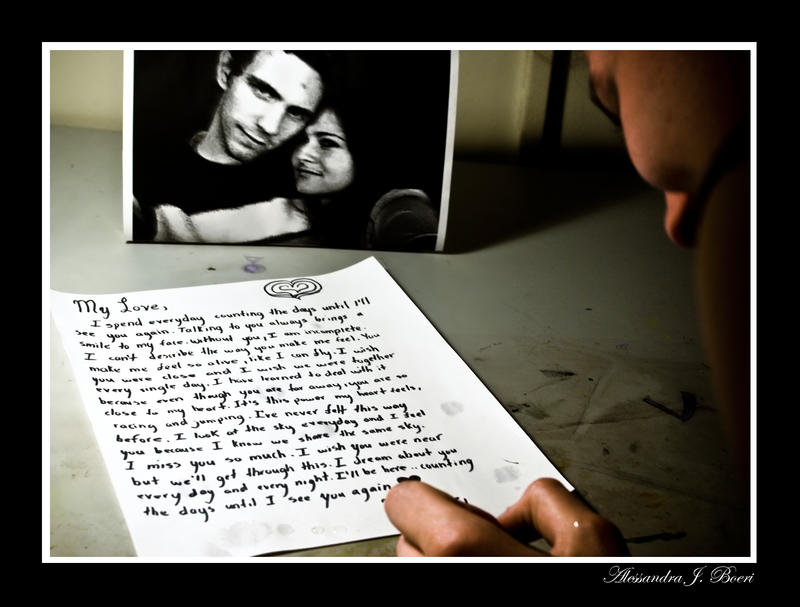 My Love,
I spend everyday counting the days until I'll
see you again. Talking to you always brings a
smile to my face. Without you, I am incomplete.
I can't describe the way you make me feel. You
make me feel so alive, like I can fly. I wish
you were close and I wish we were together
every single day. I have learned to deal with it
because even though you are far away, you are so
close to my heart. It's this power my heart feels,
racing and jumping. I've never felt this way
before. I look at the sky everyday and I feel
you because I know we share the same sky.
I miss you so much. I wish you were near
but we'll get through this. I dream about you
every day and every night. I'll be here.. counting
the days until I see you again
Alessandra J. Boeri